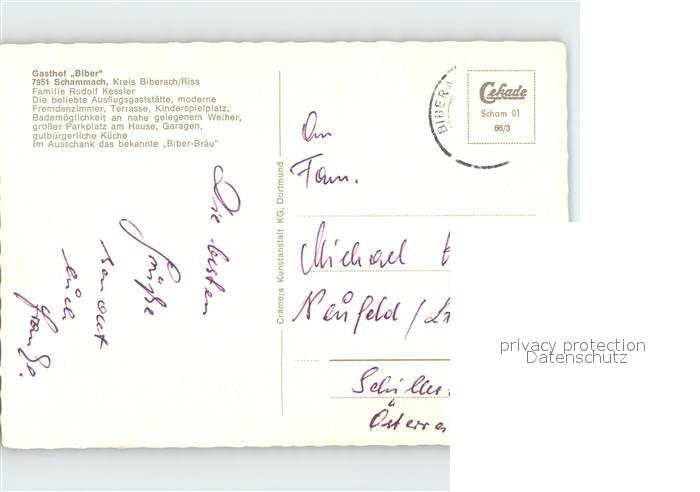 Gasthof „Biber"
7951 Schammach, Kreis Biberach/Riss
Familie Rudolf Kessler
Die beliebte Ausflugsgaststätte, moderne
Fremdenzimmer, Terrasse, Kinderspielplatz,
Bademöglichkeit an nahe gelegenem Weiher,
großer Parkplatz am Hause, Garagen,
gutbürgerliche Küche
Im Ausschank das bekannte „Biber-Bräu"
Die besten
Grüße
sendet
Euch
Cramers Kunstanstalt KG, Dortmund
BIBERA
Cekade
Scham 01
66/3
An
Fam.
Michael
Neufeld /
Schiller
Österre
privacy protection
Datenschutz